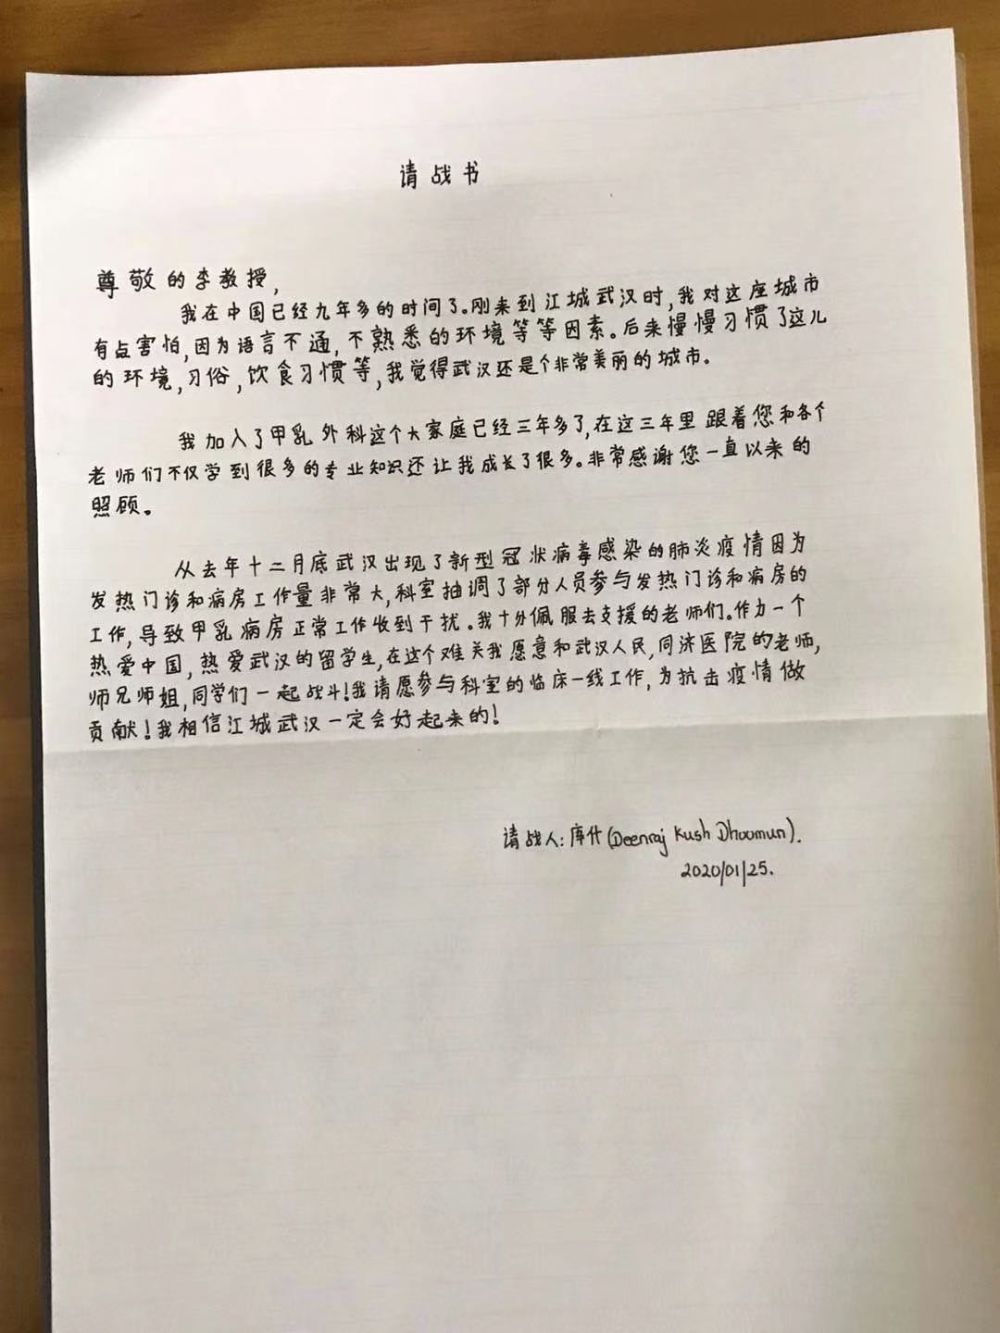 请战书
尊敬的李教授,
我在中国已经九年多的时间了。刚来到江城武汉时,我对这座城市
有点害怕,因为语言不通,不熟悉的环境等等因素。后来慢慢习惯了这儿
的环境,习俗,饮食习惯等,我觉得武汉还是个非常美丽的城市。
我加入了甲乳外科这个大家庭已经三年多了,在这三年里跟着您和各个
老师们不仅学到很多的专业知识还让我成长了很多。非常感谢您一直以来的
照顾。
从去年十二月底武汉出现了新型冠状病毒感染的肺炎疫情因为
发热门诊和病房工作量非常大,科室抽调了部分人员参与发热门诊和病房的
工作,导致甲乳病房正常工作收到干扰。我十分佩服去支援的老师们。作为一个
热爱中国,热爱武汉的留学生,在这个难关我愿意和武汉人民,同济医院的老师,
师兄师姐,同学们一起战斗!我请愿参与科室的临床一线工作,为抗击疫情做
贡献!我相信江城武汉一定会好起来的!
请战人:库什(Deenraj Kush Dhoomun).
2020/01/25.